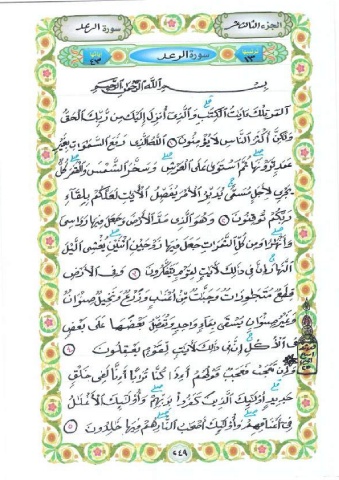 الجزء الثالث عشر
سورة الرعد
ترتيبها ١٣
سورة الرعد
آياتها ٤٣
بسم الله الرحمن الرحيم
المر تلك ءايت الكتب والذى أنزل إليك من ربك الحق
ولكن أكثر الناس لا يؤمنون ١ الله الذى رفع السموت بغير
عمد ترونها ثم استوى على العرش وسخر الشمس والقمر كل
يجرى لأجل مسمى يدبر الأمر يفصل الأيت لعلكم بلقاء
ربكم توقنون ٢ وهو الذى مد الأرض وجعل فيها روسى
وأنهرا ومن كل الثمرات جعل فيها زوجين اثنين يغشى اليل
النهار إن فى ذلك لأيت لقوم يتفكرون ٣ وفى الأرض
قطع متجورت وجنت من أعنب وزرع ونخيل صنوان
وغير صنوان يسقى بماء وحد ونفضل بعضها على بعض
فى الأكل إن فى ذلك لأيت لقوم يعقلون ٤
وإن تعجب فعجب قولهم أءذا كنا تربا أءنا لفى خلق
جديد أولئك الذين كفروا بربهم وأولئك الأغلل
فى أعناقهم وأولئك أصحب النار هم فيها خلدون ٥
٢٤٩